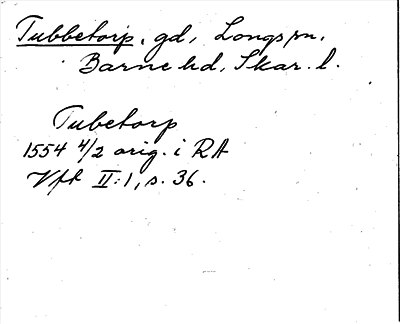 Tubbetorp, gd, Longs sn,
Barne hd, Skar. l.
Tubetorp
1554 4/2 orig. i RA
Vft II:1, s. 36.